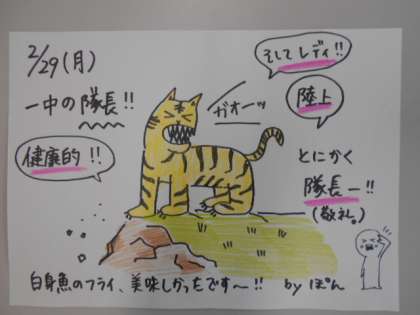 2/29(月)
一中の隊長!!
健康的!!
ガオーッ
そしてレディ!!
陸上
とにかく
隊長ー!!
(敬礼。)
白身魚のフライ、美味しかったです〜!! by ぽん